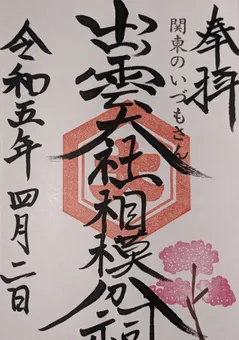 奉拝
関東のいづもさん
出雲大社相模分祠
令和五年四月二日